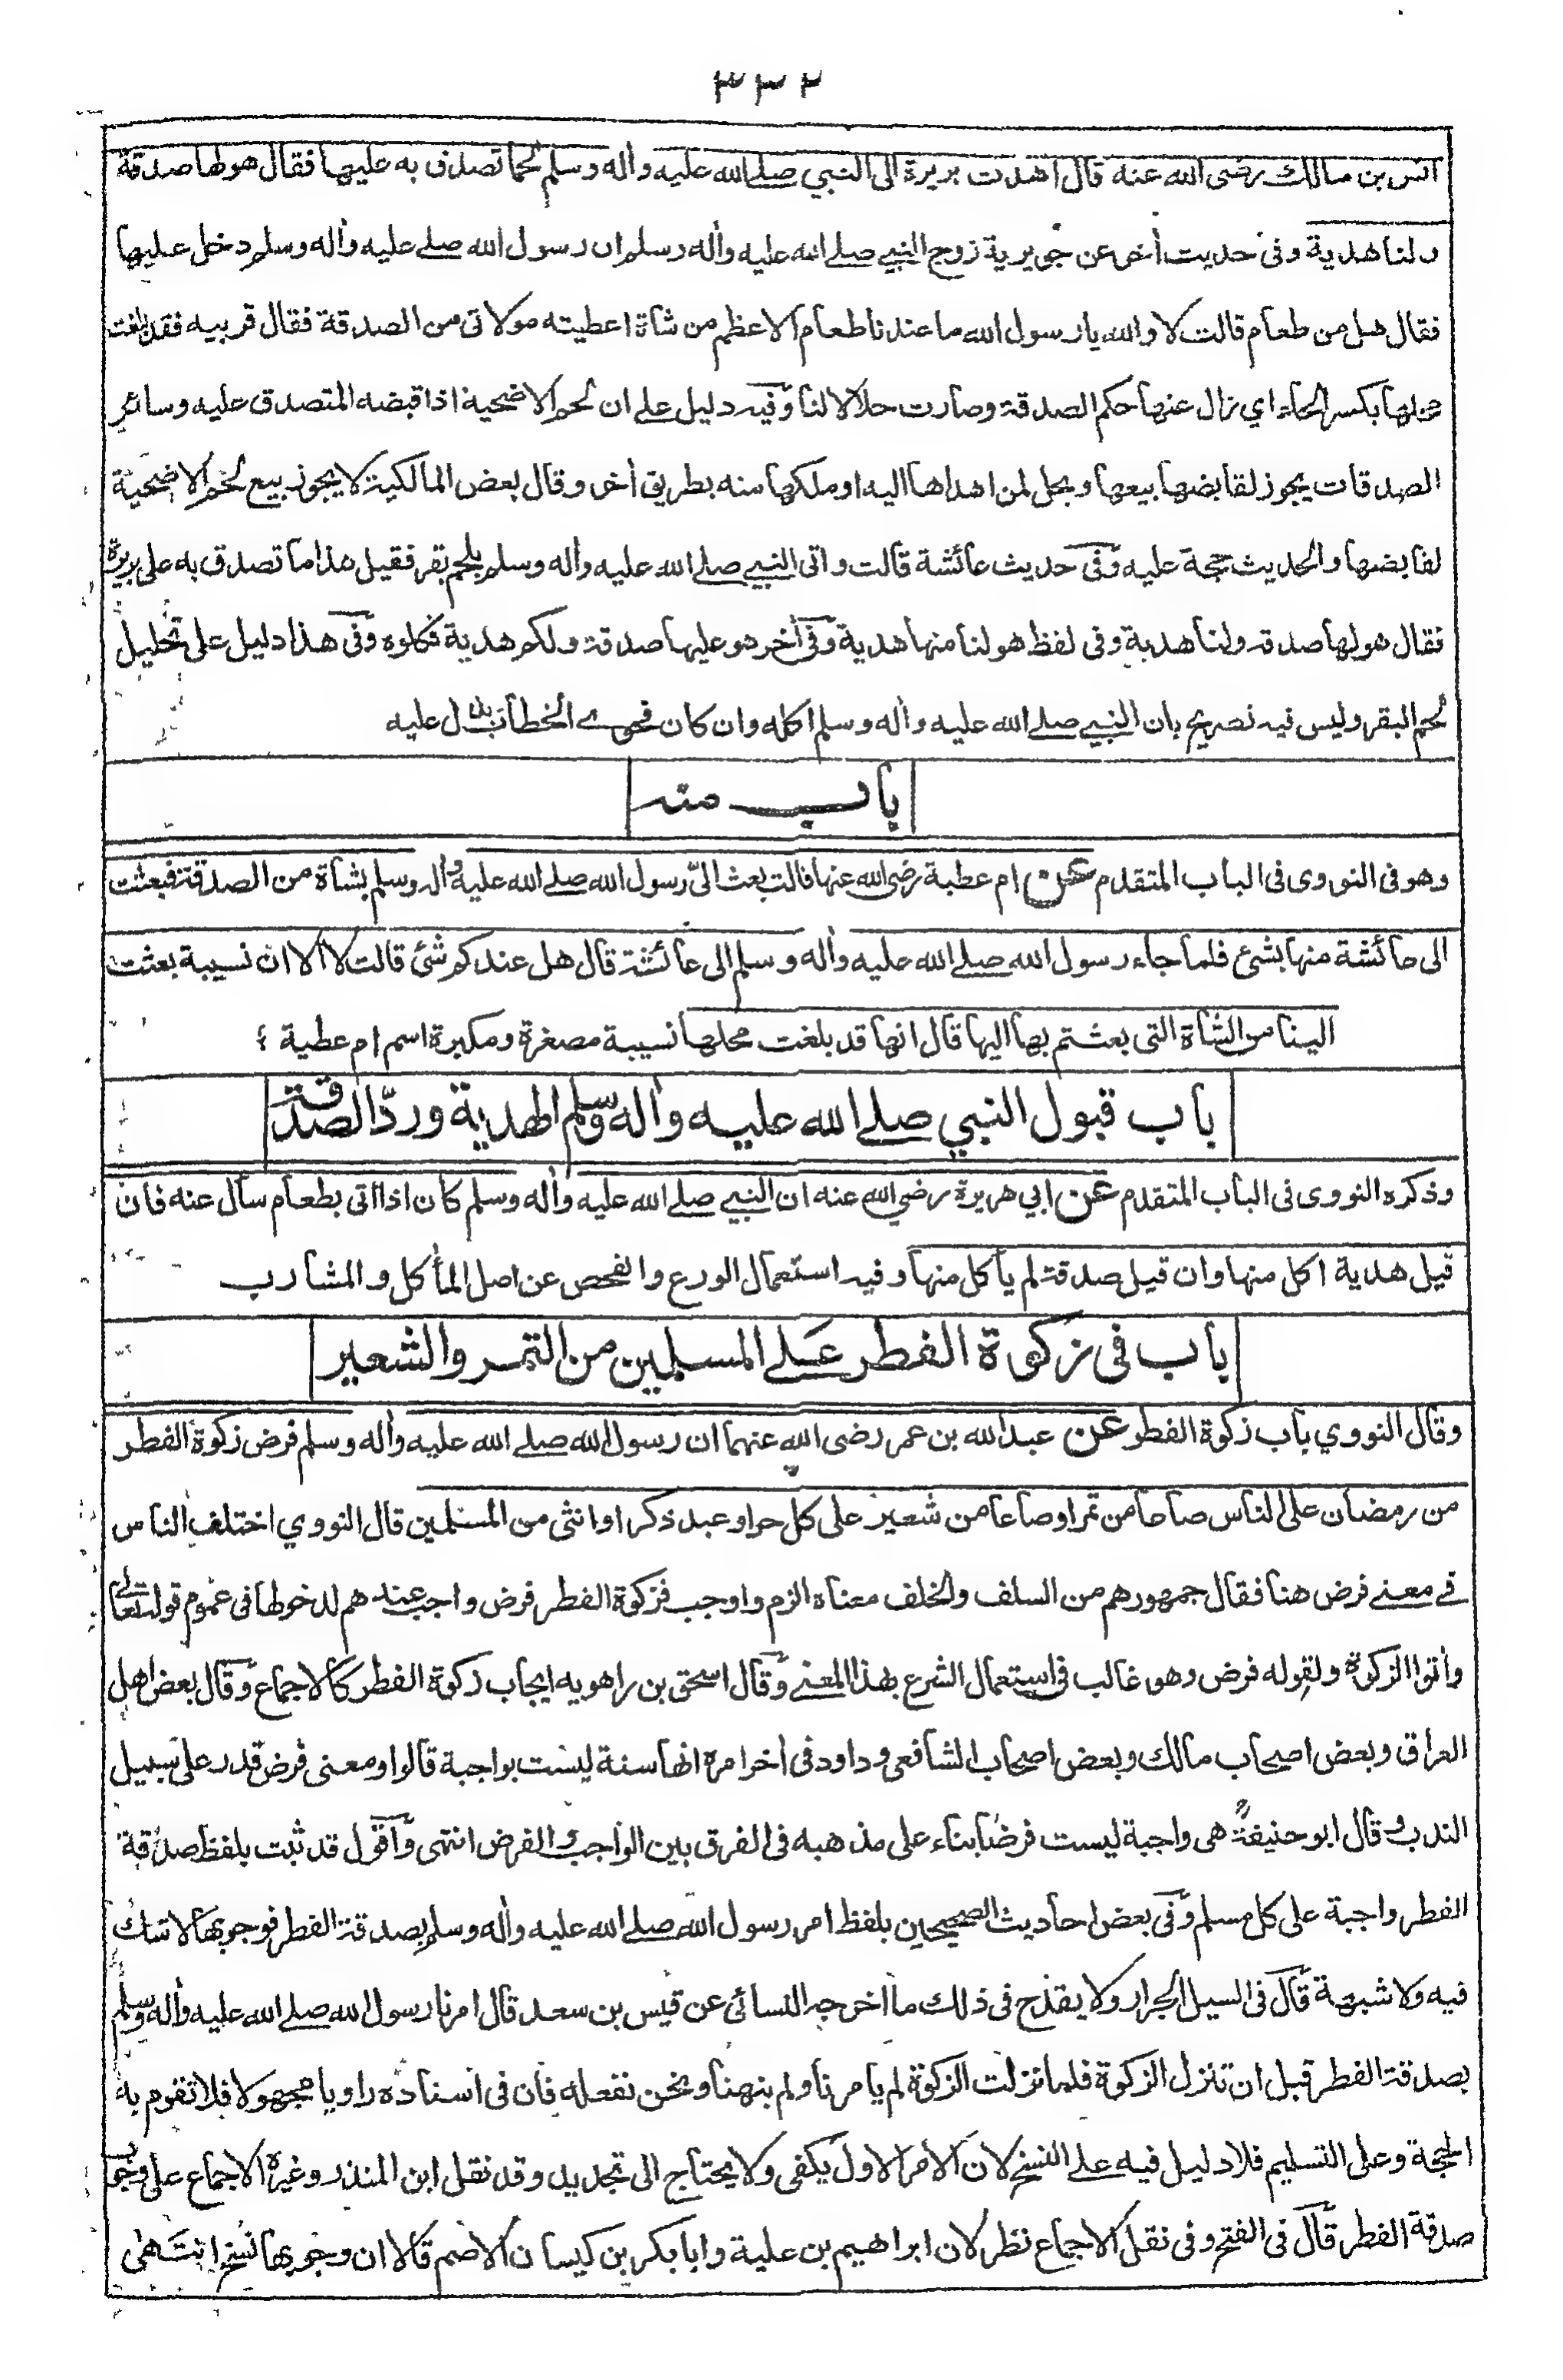 ٣٣٢
انس بن مالك رضى الله عنه قال اهدت بريرة الى النبي صلے الله عليه وأله وسلم لحما تصدق به عليها فقال هو لها صدقة
ولنا هدية وفى حديث أخر عن جويرية زوج النبي صلے الله عليه وأله وسلم ان رسول الله صلے عليه وأله وسلم دخل عليها
فقال هل من طعام قالت لا والله يا رسول الله ما عندنا طعام الا عظم من شاة اعطيته مولاتى من الصدقة فقال قربيه فقد بلغت
محلها بكسر الحاء اي زال عنها حكم الصدقة وصارت حلالا لنا وفيه دليل على ان لحم الاضحية اذا قبضه المتصدق عليه وسائر
الصدقات يجوز لقابضها بيعها ويحل لمن اهداها اليه او ملكها منه بطريق أخر وقال بعض المالكية لا يجوز بيع لحم الاضحية
لقابضها والحديث حجة عليه وفى حديث عائشة قالت واتى النبي صلے الله عليه وأله وسلم بلحم بقر فقيل هذا ما تصدق به على بريرة
فقال هو لها صدقة ولنا هدية وفى لفظ هو لنا منها هدية وفى أخر هو عليها صدقة ولكم هدية فكلوه وفى هذا دليل على تحليل
لحم البقر وليس فيه تصريح بان النبي صلے الله عليه وأله وسلم اكله وان كان فحوى الخطاب يدل عليه
باب منه
وهو فى النووى فى الباب المتقدم عن ام عطية رضى الله عنها قالت بعث الىّ رسول الله صلے الله عليه وأله وسلم بشاة من الصدقة فبعثت
الى عائشة منها بشئ فلما جاء رسول الله صلے الله عليه وأله وسلم الى عائشة قال هل عندكم شئ قالت لا الا ان نسيبة بعثت
الينا من الشاة التى بعثتم بها اليها قال انها قد بلغت محلها نسيبة مصغرة ومكبرة اسم ام عطية ؛
باب قبول النبي صلے الله عليه وأله وسلم الهدية وردّ الصدقة
وذكره النووى فى الباب المتقدم عن ابي هريرة رضي الله عنه ان النبي صلے الله عليه وأله وسلم كان اذا اتى بطعام سأل عنه فان
قيل هدية اكل منها وان قيل صدقة لم يأكل منها وفيه استعمال الورع والفحص عن اصل المأكل والمشارب
باب فى زكوة الفطر عَلے المسلمين من التمر والشعير
وقال النووي باب زكوة الفطر عن عبد الله بن عمر رضى الله عنهما ان رسول الله صلے الله عليه وأله وسلم فرض زكوة الفطر
من رمضان على الناس صاعا من تمر او صاعا من شعير على كل حر او عبد ذكر او انثى من المسلمين قال النووي اختلف الناس
فے معنے فرض هنا فقال جمهورهم من السلف والخلف معناه الزم واوجب فزكوة الفطر فرض واجب عندهم لدخولها فى عموم قوله تعالے
وأتوا الزكوة ولقوله فرض وهو غالب فى استعمال الشرع بهذا المعنے وقال اسحق بن راهويه ايجاب زكوة الفطر كالاجماع وقال بعض اهل
العراق وبعض اصحاب مالك وبعض اصحاب الشافعى وداود فى أخر امره انها سنة ليست بواجبة قالوا ومعنى فرض قدر على سبيل
الندب وقال ابو حنيفةؒ هى واجبة ليست فرضا بناء على مذهبه فى الفرق بين الواجب والفرض انتهى وأقول قد ثبت بلفظ صدقة
الفطر واجبة على كل مسلم وفى بعض احاديث الصحيحين بلفظ امر رسول الله صلے الله عليه وأله وسلم بصدقة الفطر فوجوبها لا شك
فيه ولا شبهة قال فى السيل الجرار ولا يقدح فى ذلك ما اخرجه النسائى عن قيس بن سعد قال امرنا رسول الله صلے الله عليه وأله وسلم
بصدقة الفطر قبل ان تنزل الزكوة فلما نزلت الزكوة لم يامرنا ولم ينهنا ونحن نفعله فان فى اسناده راويا مجهولا فلا تقوم به
الحجة وعلى التسليم فلا دليل فيه علے النسخ لان الامر الاول يكفى ولا يحتاج الى تجديد وقد نقل ابن المنذر وغيره الاجماع على وجوب
صدقة الفطر قال فى الفتح وفى نقل الاجماع نظر لان ابراهيم بن علية وابا بكر بن كيسان الاضم قالا ان وجوبها نسخ انتهى